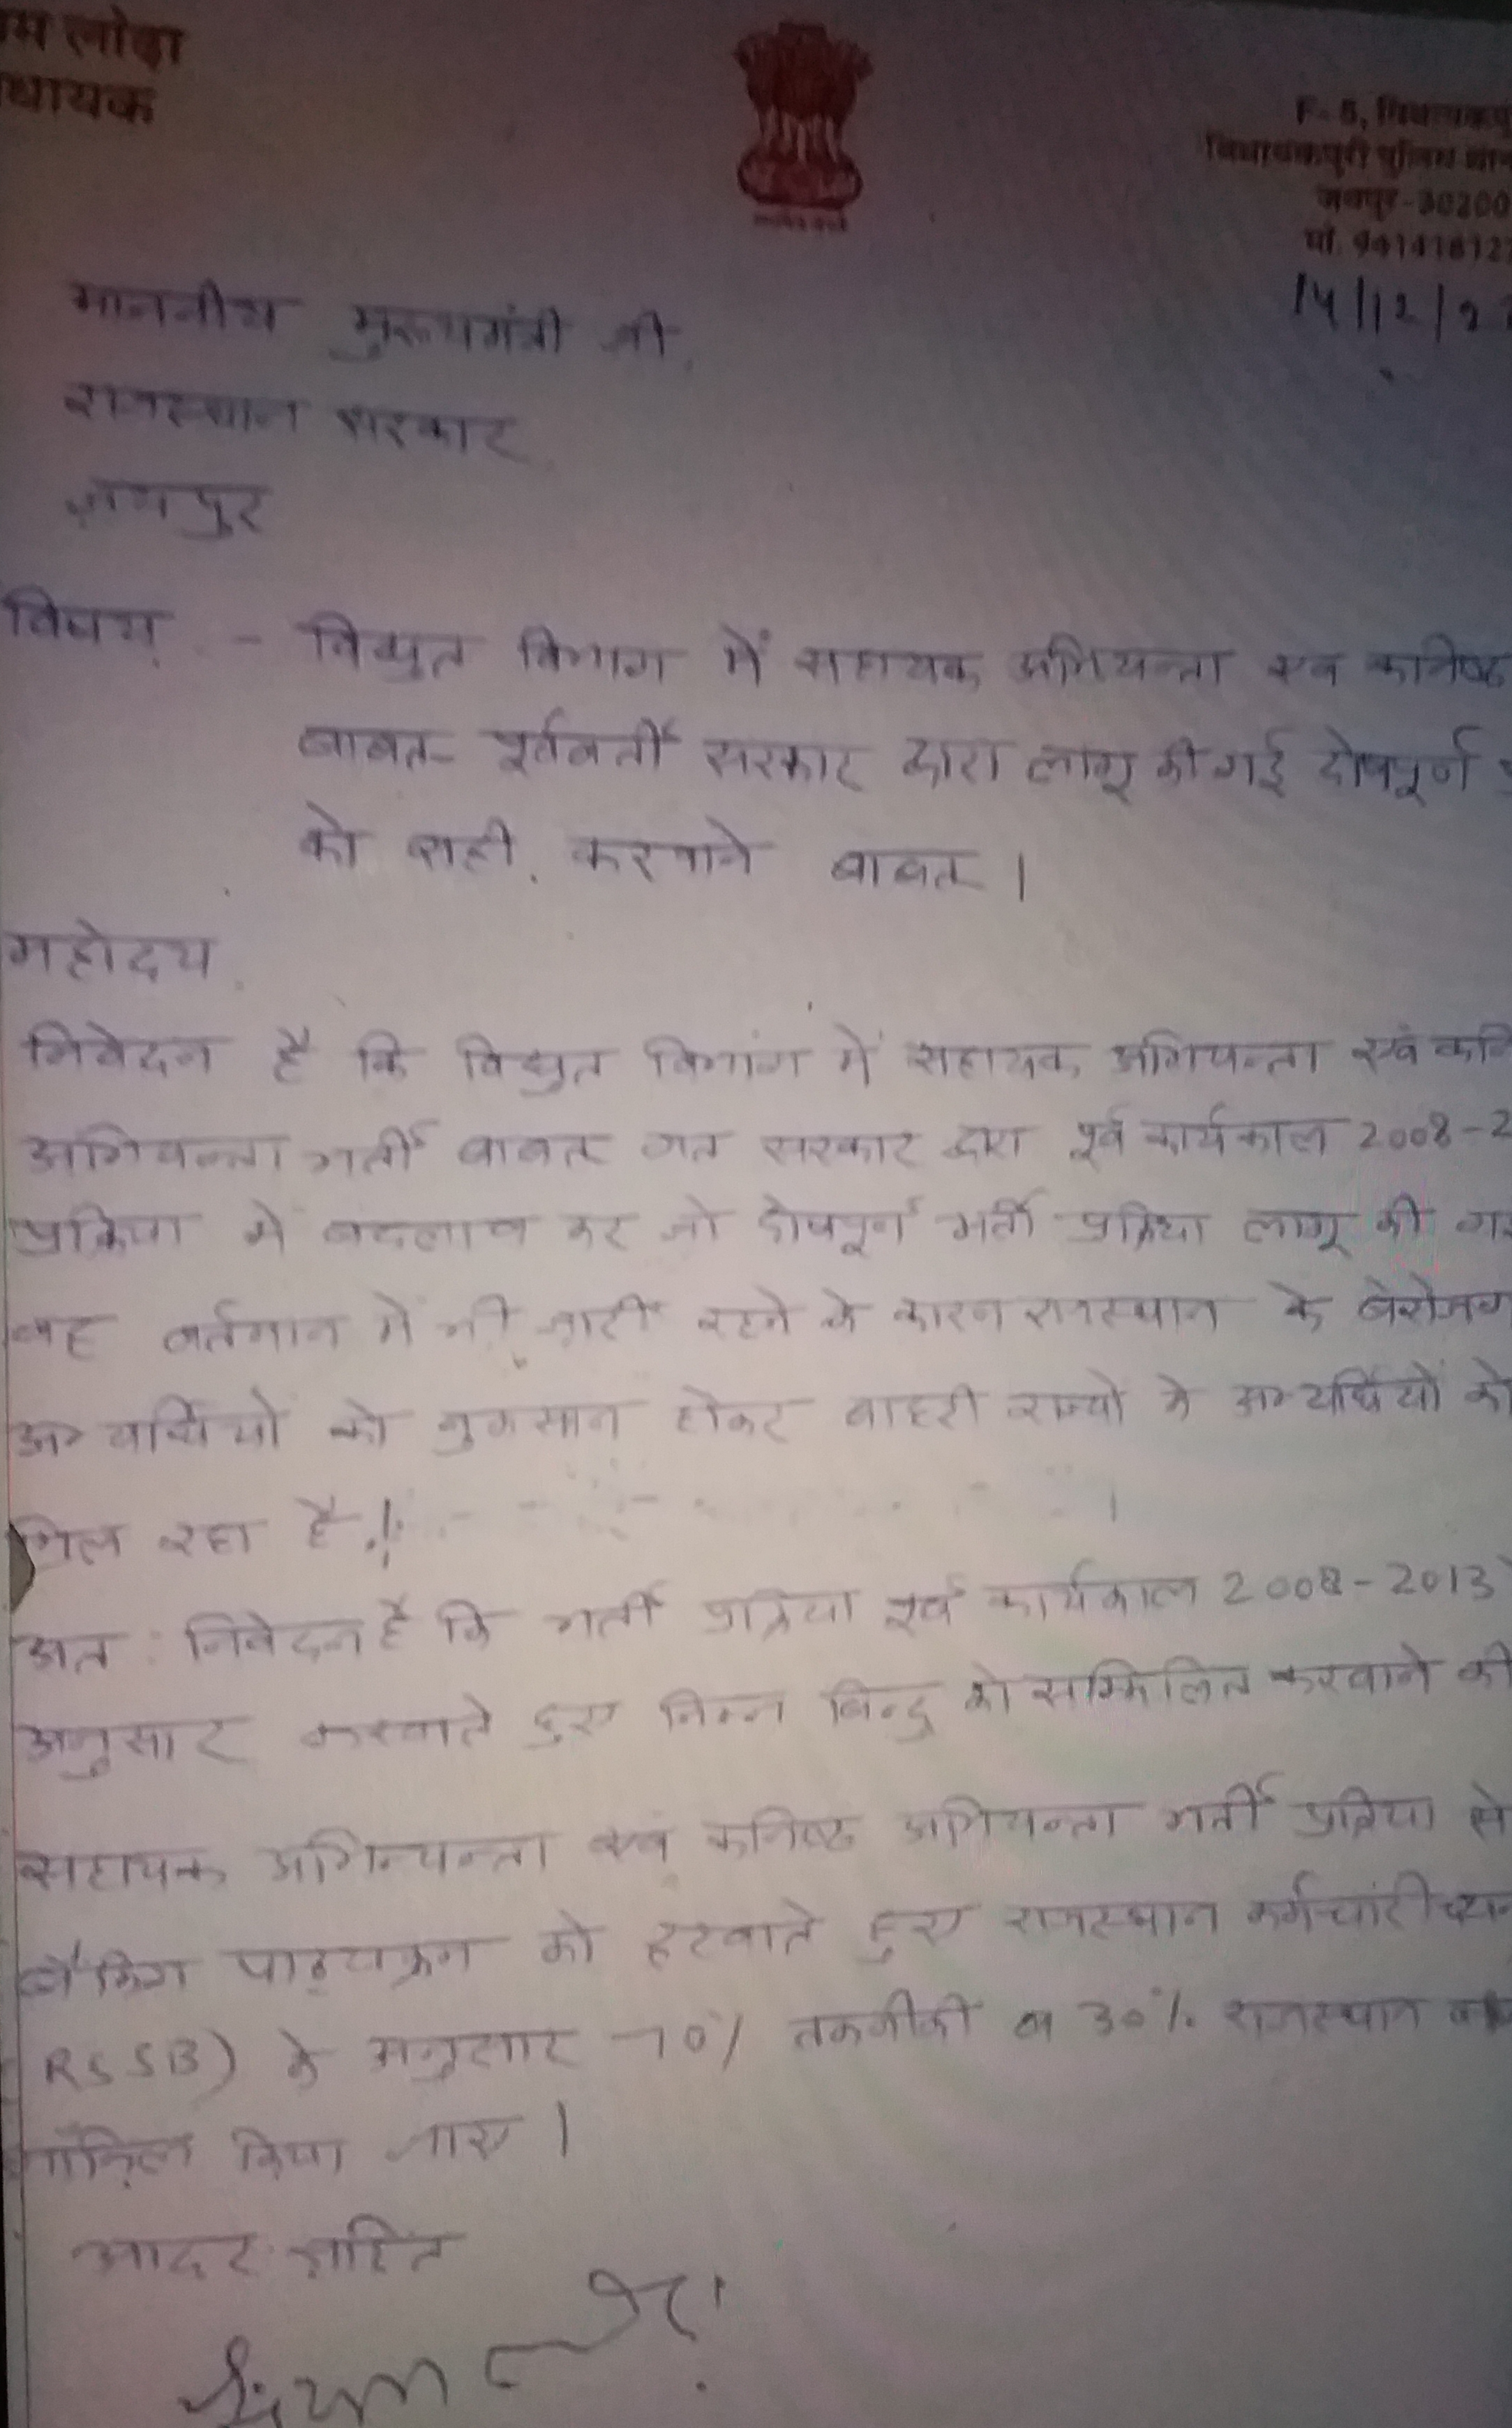 लोढ़ा
F-5,
विधायकपुरी पुलिस
जयपुर-30200
मो. 94141812
14/12/2
माननीय मुख्यमंत्री जी,
राजस्थान सरकार,
जयपुर
विषय - विद्युत विभाग में सहायक अभियन्ता एवं कनिष्ठ
बाबत पूर्ववर्ती सरकार द्वारा लागू की गई दोषपूर्ण
को सही करवाने बाबत।
महोदय,
निवेदन है कि विद्युत विभाग में सहायक अभियन्ता एवं कनि
अभियन्ता भर्ती बाबत गत सरकार द्वारा पूर्व कार्यकाल 2008-2
प्रक्रिया में बदलाव कर जो दोषपूर्ण भर्ती प्रक्रिया लागू की गई
वह वर्तमान में भी जारी रहने के कारण राजस्थान के बेरोजग
अभ्यर्थियों को नुकसान होकर बाहरी राज्यों के अभ्यर्थियों को
मिल रहा है।
अतः निवेदन है कि भर्ती प्रक्रिया पूर्व कार्यकाल 2008-2013
अनुसार करवाते हुए निम्न बिन्दु को सम्मिलित करवाने की
सहायक अभियन्ता एवं कनिष्ठ अभियन्ता भर्ती प्रक्रिया से
बैंकिंग पाठ्यक्रम को हटवाते हुए राजस्थान कर्मचारी चयन
RSSB) के अनुसार 70% तकनीकी व 30% राजस्थान
किया जाए।
आदर सहित